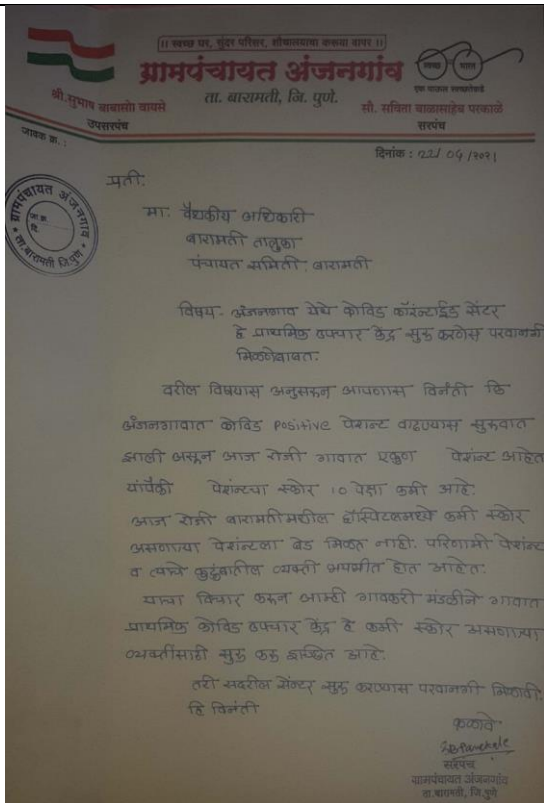 ।। स्वच्छ घर, सुंदर परिसर, शौचालयाचा कराया वापर ।।
ग्रामपंचायत अंजनगांव
स्वच्छ भारत
एक पाऊल स्वच्छतेकडे
ता. बारामती, जि. पुणे.
श्री. सुभाष बाबासो वायसे
उपसरपंच
सौ. सविता बाळासाहेब परकाळे
सरपंच
जावक क्र. :
दिनांक : 22/04/2021
ग्रामपंचायत अंजनगाव
जा.क्र.
दि.
ता.बारामती जि.पुणे
प्रती.
मा. वैद्यकीय अधिकारी
बारामती तालुका
पंचायत समिती. बारामती
विषय- अंजनगाव येथे कोविड कॉरंन्टाईड सेंटर
हे प्राथमिक उपचार केंद्र सुरू करणेस परवानगी
मिळणेबाबत.
वरील विषयास अनुसरून आपणास विनंती कि
अंजनगावात कोविड Positive पेशन्ट वाढण्यास सुरूवात
झाली असून आज रोजी गावात एकुण पेशंन्ट आहेत
यांपैकी पेशंन्टचा स्कोर 10 पेक्षा कमी आहे.
आज रोजी बारामतीमधील हॉस्पिटलमध्ये कमी स्कोर
असणाऱ्या पेशंन्टला बेड मिळत नाही. परिणामी पेशंन्ट
व त्यांचे कुटुंबातील व्यक्ती भयभीत होत आहेत.
याचा विचार करून आम्ही गावकरी मंडळीने गावात
प्राथमिक कोविड उपचार केंद्र हे कमी स्कोर असणाऱ्या
व्यक्तींसाठी सुरू करू इच्छित आहे.
तरी सदरील सेंन्टर सुरू करण्यास परवानगी मिळावी.
हि विनंती
कळावे.
सरपंच
ग्रामपंचायत अंजनगांव
ता.बारामती, जि.पुणे